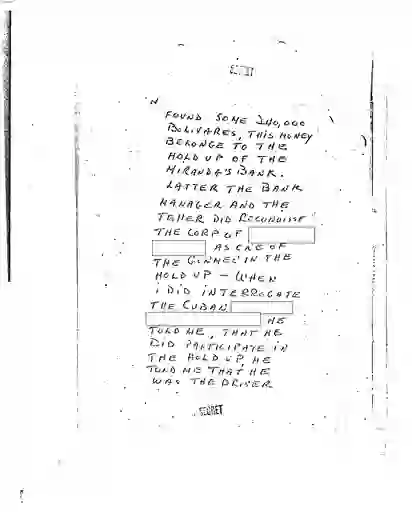 SECRET
FOUND SOME 240,000
BOLIVARES, THIS MONEY
BELONGE TO THE
HOLD UP OF THE
MIRANDA'S BANK.
LATTER THE BANK
MANAGER AND THE
TELLER DID RECONDISE
THE CORP OF
AS ONE OF
THE GUNMEN IN THE
HOLD UP - WHEN
i DID INTERROGATE
THE CUBAN
HE
TOLD ME, THAT HE
DID PARTICIPATE IN
THE HOLD UP, HE
TOLD ME THAT HE
WAS THE DRIVER
SECRET